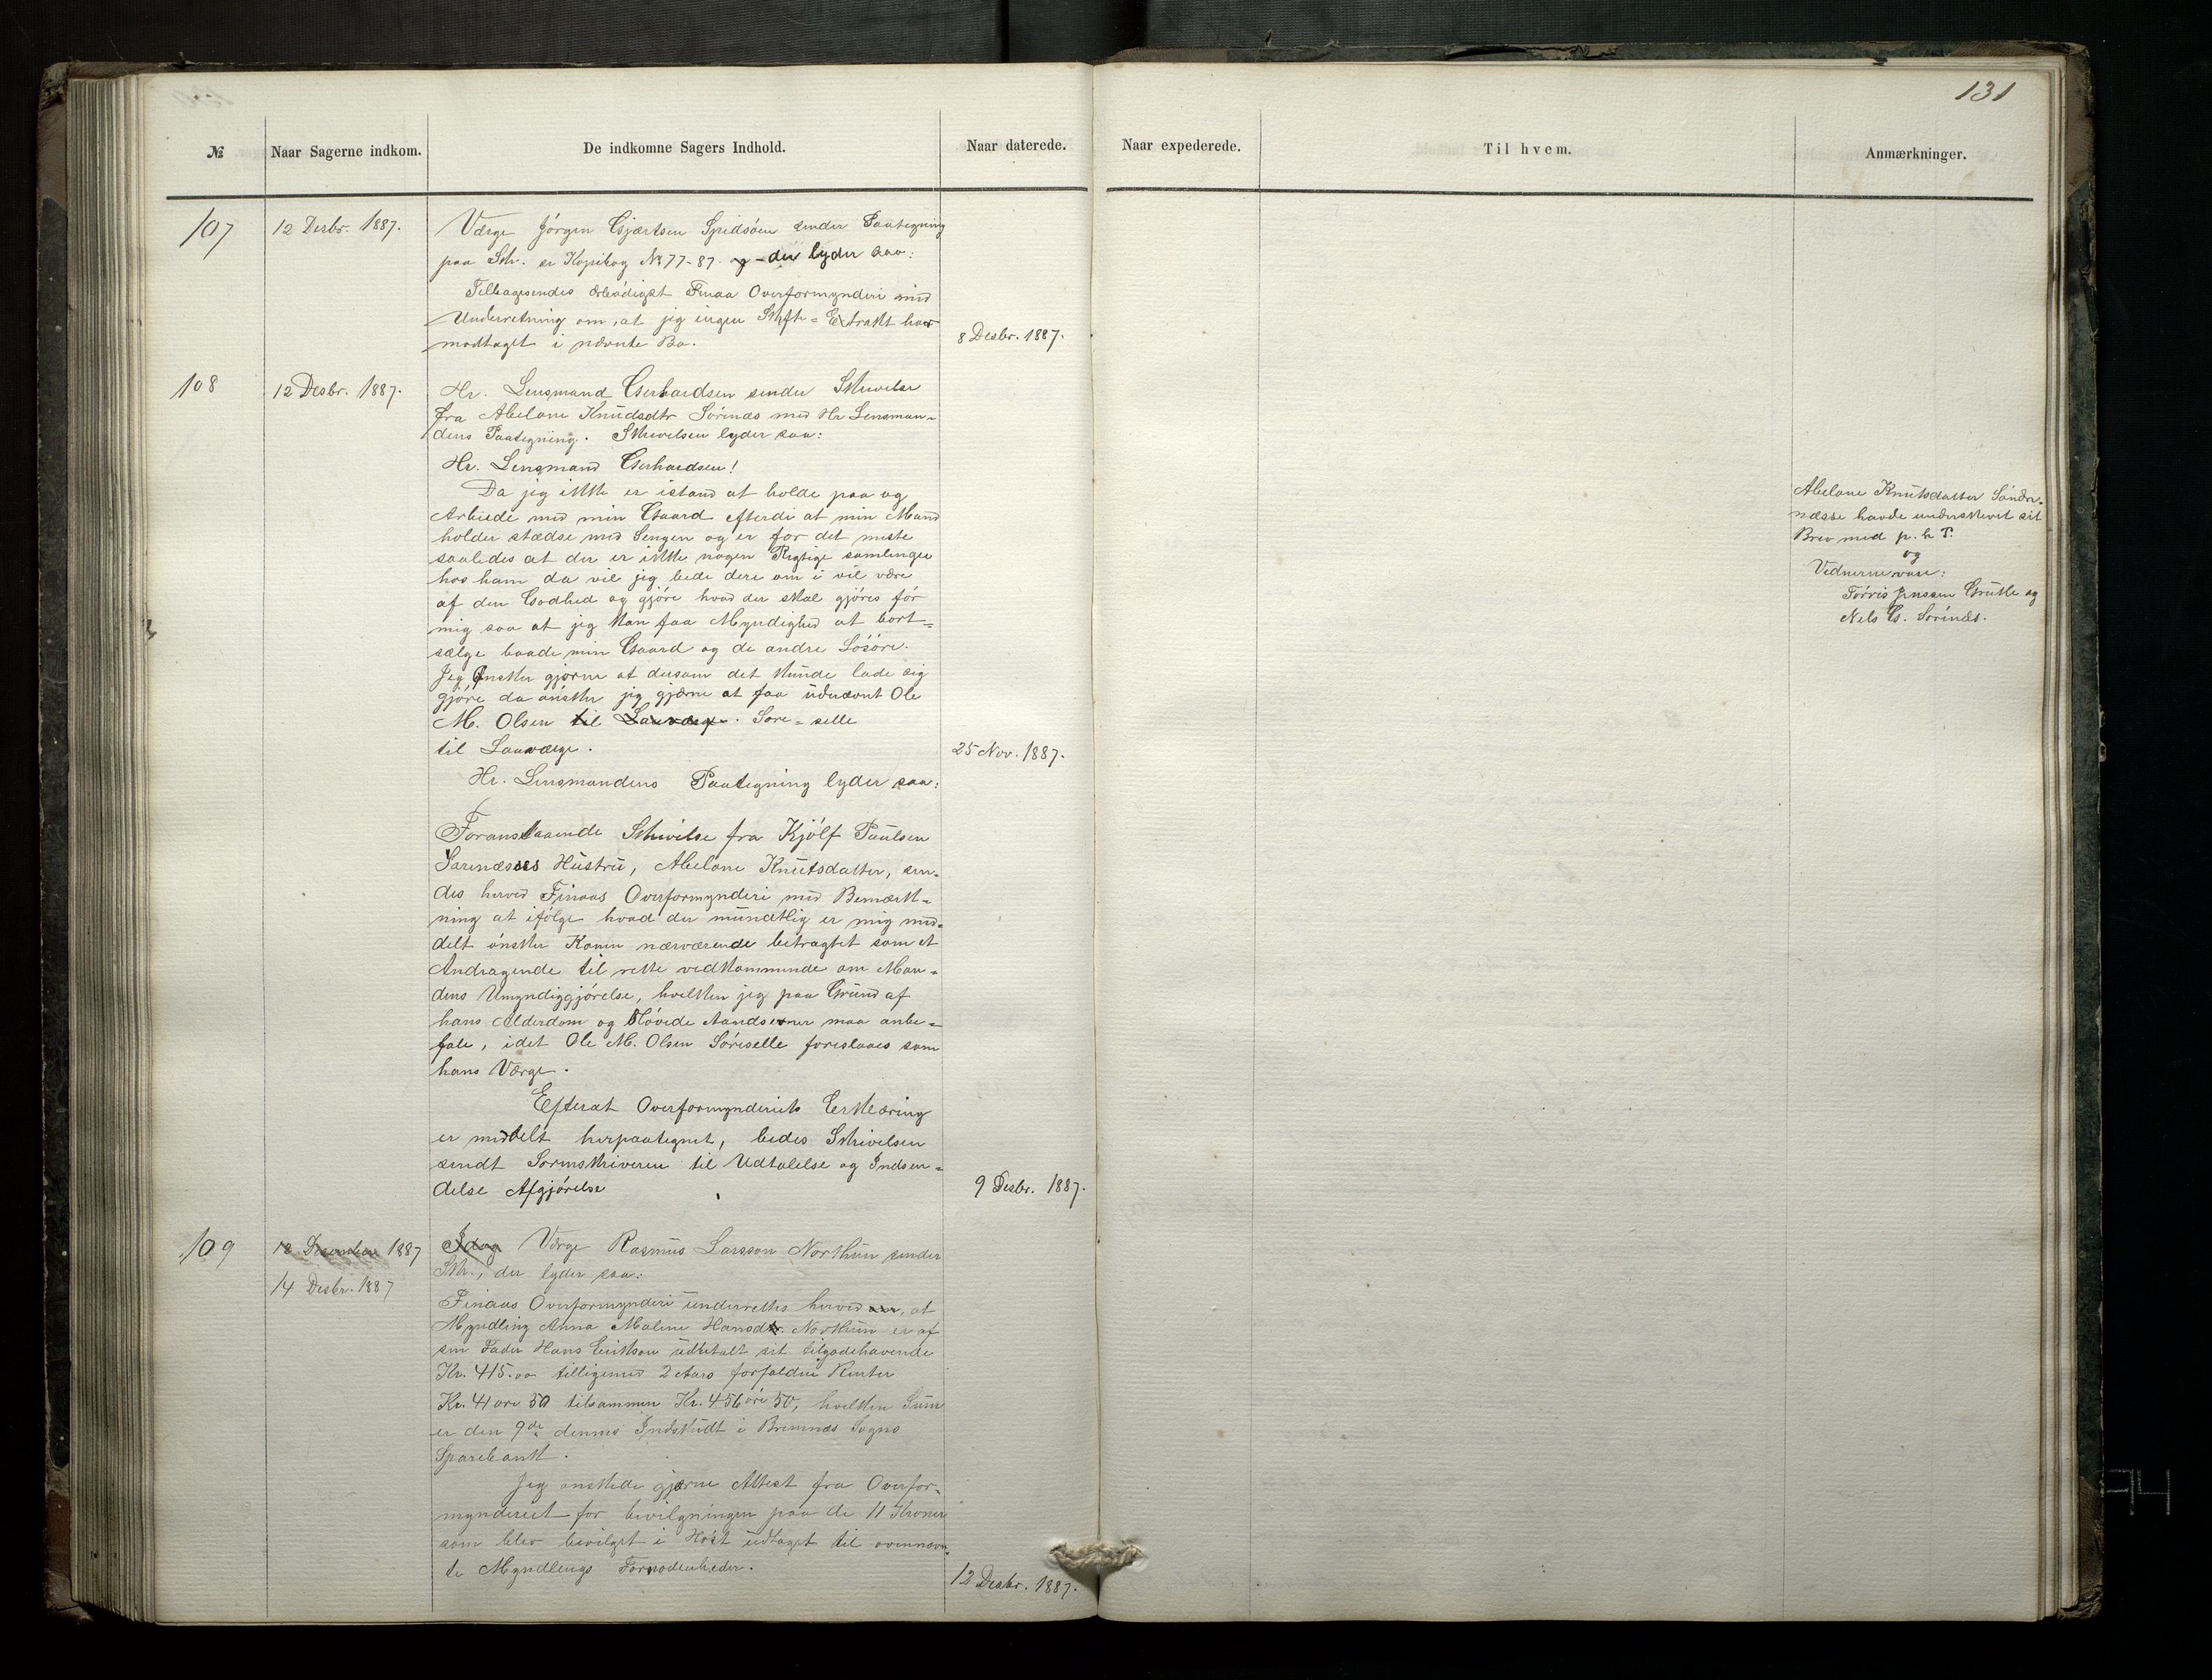 131
№ Naar Sagerne indkom. De indkomne Sagers Indhold. Naar daterede. Naar expederede. Til hvem. Anmærkninger.
107 12 Desbr. 1887. Værge Jórgen Gjærtsen Spidsóen sender Paategning
paa Skr. se Kopibog No 77-87. og - der lyder saa:
Tilbagesendes ærbódigst Finaas Overformynderi med
Underretning om, at jeg ingen Skifte-Extrakt har
modtaget i nævnte Bo. 8 Desbr. 1887.
108 12 Desbr. 1887. Hr. Lensmand Gerhardsen sender Skrivelse
fra Abelone Knudsdtr Sórnæs med Hr Lensman-
dens Paategning. Skrivelsen lyder saa:
Hr. Lensmand Gerhardsen!
Da jeg ikke er istand at holde paa og
Arbeide med min Gaard efterdi at min Mand
holder stædse med Sengen og er for det meste
saaledes at der er ikke nogen Rigtige samlinger
hos ham da vil jeg bede dere om i vil være
af den Godhed og gjóre hvad der skal gjóres fór
mig saa at jeg kan faa Myndighed at bort-
sælge baade min Gaard og de andre Lósóre.
Jeg ónsker gjerne at dersom det kunde lade sig
gjóre da ónsker jeg gjærne at faa udnævnt Ole
M. Olsen til Lauværge. Sore-selle
til Lauværge. 25 Nov. 1887.
Hr. Lensmandens Paategning lyder saa:
Foranstaaende Skrivelse fra Kjólf Paulsen
Sørenæsses Hustru, Abelone Knutsdatter, sen-
des herved Finaas Overformynderi med Bemærk-
ning at ifólge hvad der mundtlig er mig med-
delt ónsker Konen nærværende betragtet som et
Andragende til rette vedkommende om Man-
dens Umyndiggjórelse, hvilken jeg paa Grund af
hans Alderdom og Slóvede Aandsevner maa anbe-
fale, idet Ole M. Olsen Sóreselle foreslaaes som
hans Værge.
Efterat Overformynderiets Erklæring
er meddelt herpaategnet, bedes Skrivelsen
sendt Sorenskriveren til Udtalelse og Indsen-
delse Afgjórelse 9 Desbr. 1887.
Abelone Knutsdatter Sóndre-
næsse havde underskrevet sit
Brev med p. h P.
og
Vednerne vare:
Tórris Jenssen Grutle og
Nels G. Sórnæs.
109 12 Desember 1887 Idag Værge Rasmus Larsson Norkun sender
14 Desbr. 1887 Skr., der lyder saa:
Finaas Overformynderi underrettes herved om, at
Myndling Anna Maline Hansdtr. Norkun er af
sin Fader Hans Erikson udbetalt sit tilgodehavende
Kr. 415.00 tilligemed 2 Aars forfaldne Renter
Kr. 41 óre 50 tilsammen Kr. 456 óre 50, hvilken Sum
er den 9de dennes Indskudt i Bremnæs Sogns
Sparebank.
Jeg ónskede gjærne Attest fra Overfor-
mynderiet for bevilgningen paa de 11 Kroner
som blev bevilget i Hóst udtaget til ovennævn-
te Myndlings Fornódenheder. 12 Desbr. 1887.